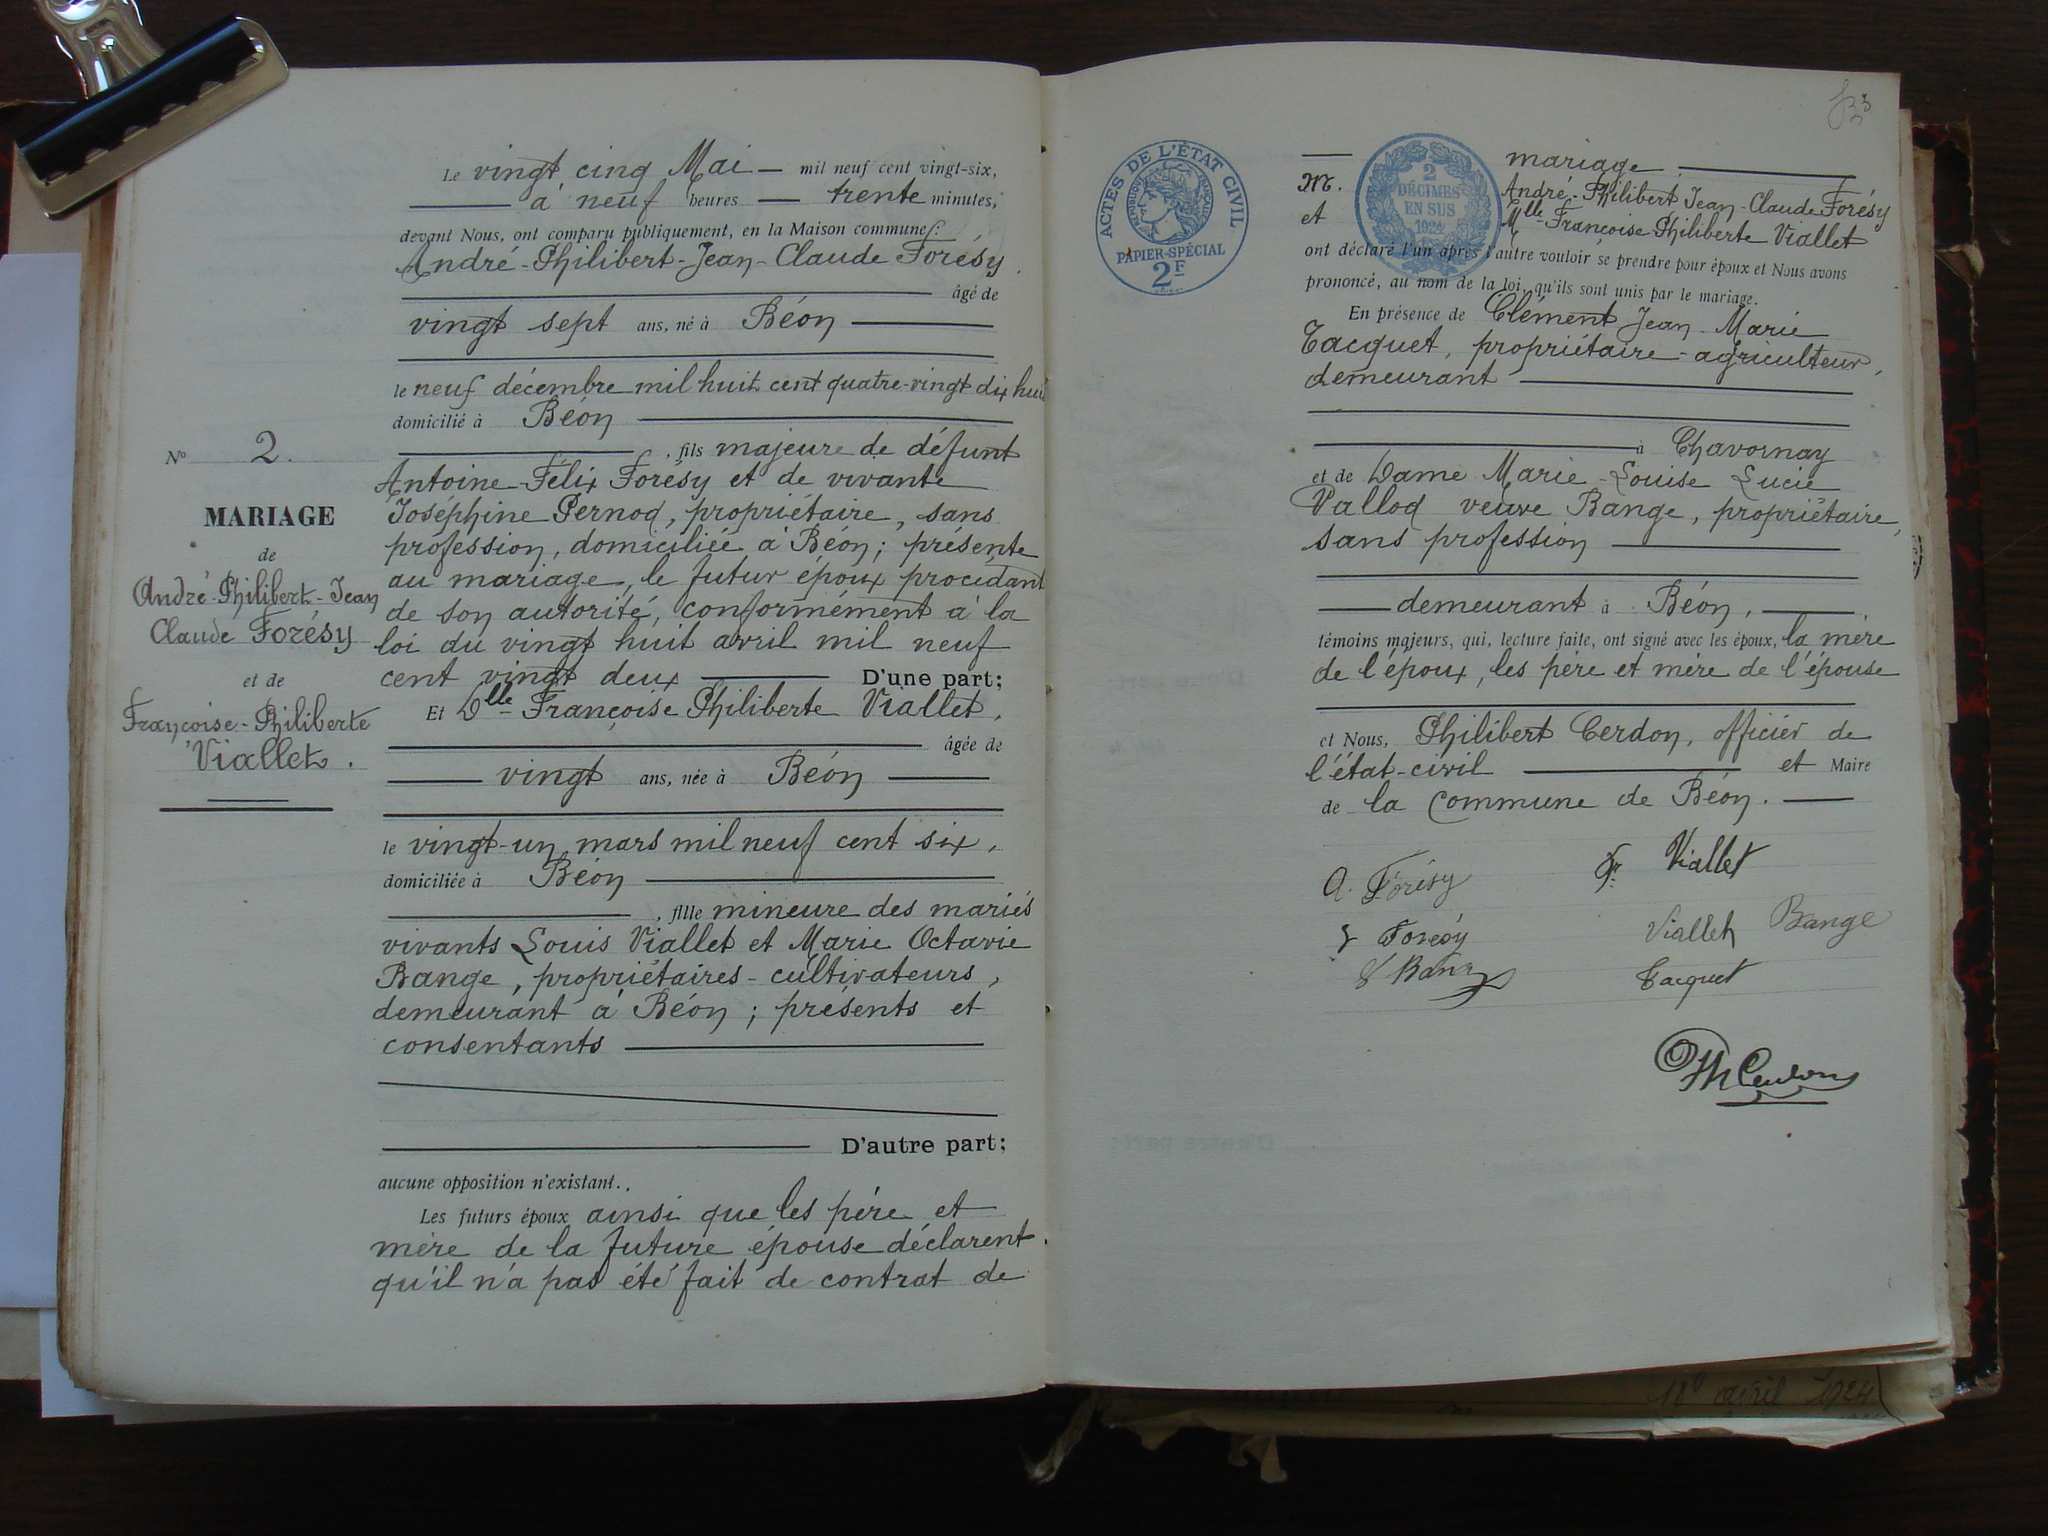 Le vingt cinq Mai — mil neuf cent vingt-six,
à neuf heures — trente minutes,
devant Nous, ont comparu publiquement, en la Maison commune :
André-Philibert-Jean-Claude Forésy
âgé de
vingt sept ans, né à Béon
le neuf décembre mil huit cent quatre-vingt dix huit
domicilié à Béon
, fils majeure de défunt
Antoine-Félix Forésy et de vivante
Joséphine Pernod, propriétaire, sans
profession, domiciliée à Béon ; présente
au mariage, le futur époux procédant
de son autorité, conformément à la
loi du vingt huit avril mil neuf
cent vingt deux D'une part;
Et Dlle Françoise Philiberte Viallet,
âgée de
vingt ans, née à Béon
le vingt-un mars mil neuf cent six,
domiciliée à Béon
, fille mineure des mariés
vivants Louis Viallet et Marie Octavie
Bange, propriétaires-cultivateurs,
demeurant à Béon ; présents et
consentants
D'autre part;
aucune opposition n'existant.
Les futurs époux ainsi que les père et
mère de la future épouse déclarent
qu'il n'a pas été fait de contrat de
N° 2.
MARIAGE
de
André-Philibert-Jean
Claude Forésy
et de
Françoise-Philiberte
Viallet.
ACTES DE L'ÉTAT CIVIL
RÉPUBLIQUE FRANÇAISE
PAPIER-SPÉCIAL
2F
2
DÉCIMES
EN SUS
1924
mariage.
M. André-Philibert Jean-Claude Forésy
et Mlle Françoise Philiberte Viallet
ont déclaré l'un après l'autre vouloir se prendre pour époux et Nous avons
prononcé, au nom de la loi, qu'ils sont unis par le mariage.
En présence de Clément Jean-Marie
Tacquet, propriétaire-agriculteur,
demeurant
à Chavornay
et de Dame Marie-Louise Lucie
Vallod veuve Bange, propriétaire,
sans profession
demeurant à Béon,
témoins majeurs, qui, lecture faite, ont signé avec les époux, la mère
de l'époux, les père et mère de l'épouse
et Nous, Philibert Cerdon, officier de
l'état-civil et Maire
de la commune de Béon.
A. Forésy Fr. Viallet
Forésy Viallet Bange
Tacquet
Ph Cerdon
avril 1924